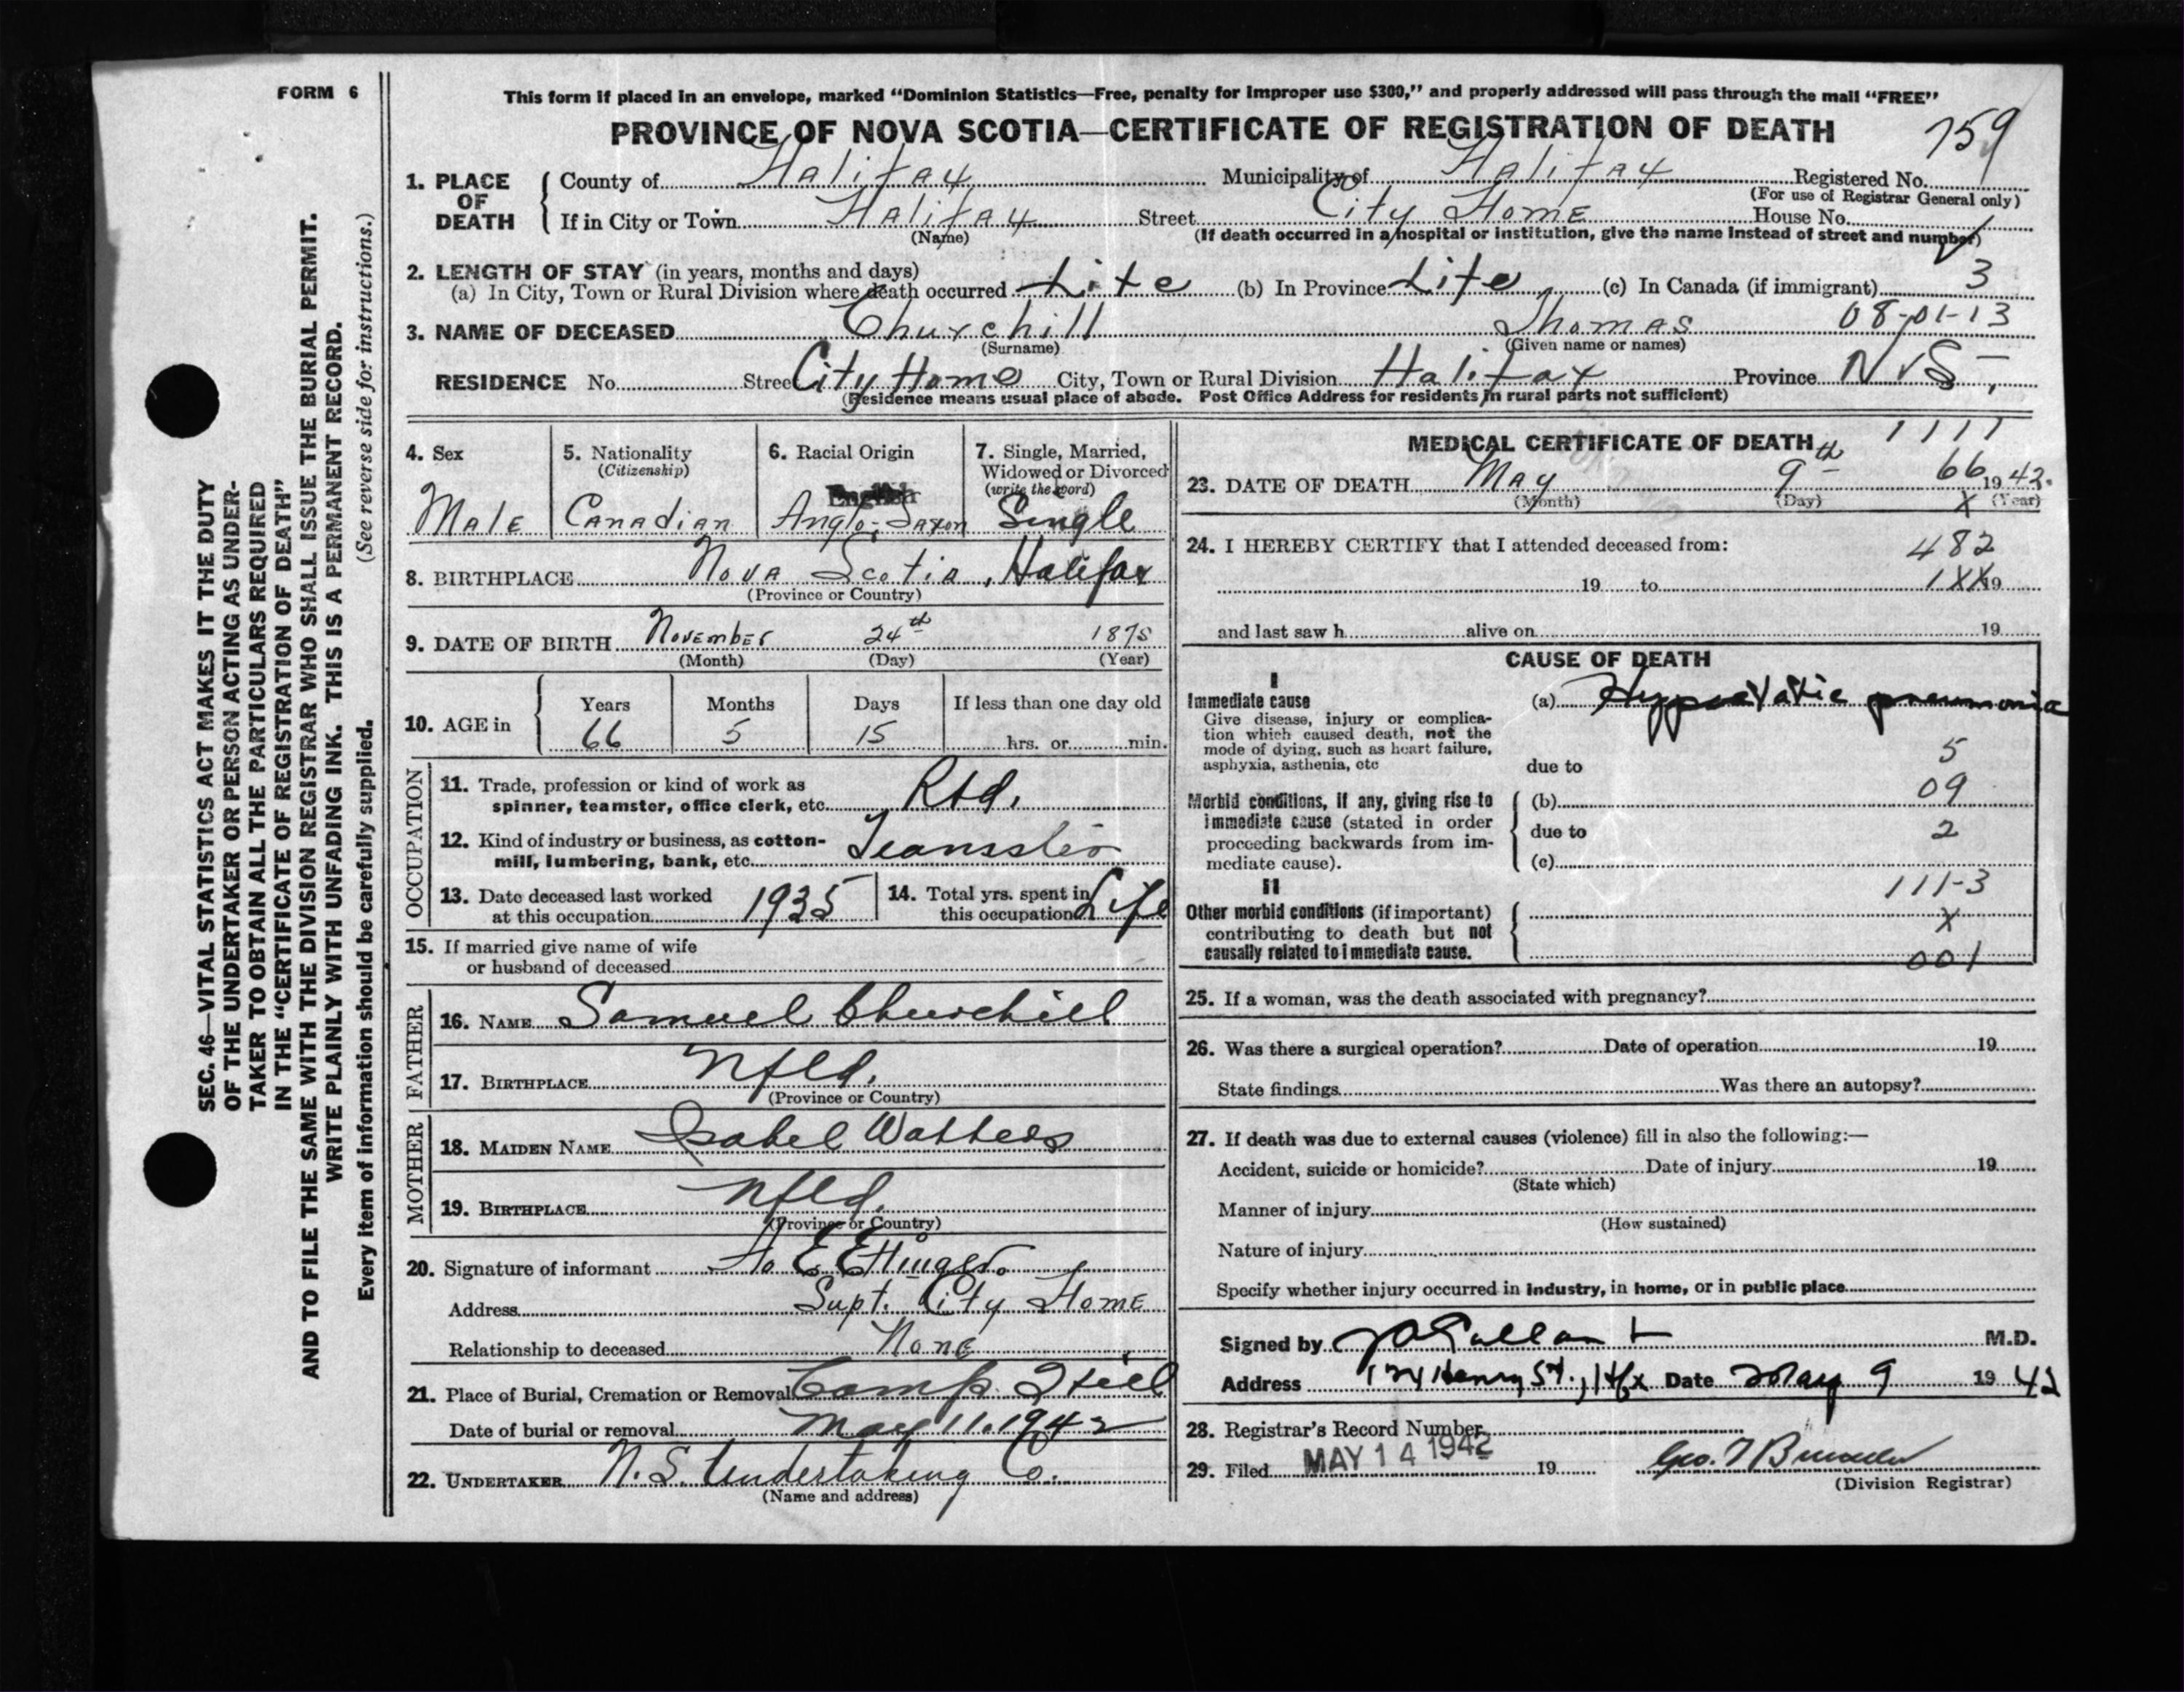 FORM 6
This form if placed in an envelope, marked “Dominion Statistics—Free, penalty for improper use $300,” and properly addressed will pass through the mail “FREE”
PROVINCE OF NOVA SCOTIA—CERTIFICATE OF REGISTRATION OF DEATH
759
1. PLACE OF DEATH
County of Halifax Municipality of Halifax Registered No.
(For use of Registrar General only)
If in City or Town Halifax Street City Home House No.
(Name) (If death occurred in a hospital or institution, give the name instead of street and number)
2. LENGTH OF STAY (in years, months and days)
(a) In City, Town or Rural Division where death occurred Life (b) In Province Life (c) In Canada (if immigrant) 3
3. NAME OF DECEASED Churchill Thomas 08-01-13
(Surname) (Given name or names)
RESIDENCE No. Street City Home City, Town or Rural Division Halifax Province N.S.
(Residence means usual place of abode. Post Office Address for residents in rural parts not sufficient)
4. Sex 5. Nationality (Citizenship) 6. Racial Origin 7. Single, Married, Widowed or Divorced (write the word)
English
Male Canadian Anglo-Saxon Single
8. BIRTHPLACE Nova Scotia, Halifax
(Province or Country)
9. DATE OF BIRTH November 24th 1875
(Month) (Day) (Year)
10. AGE in Years Months Days If less than one day old
66 5 15 hrs. or min.
OCCUPATION
11. Trade, profession or kind of work as
spinner, teamster, office clerk, etc. Rtd.
12. Kind of industry or business, as cotton-
mill, lumbering, bank, etc.
13. Date deceased last worked
at this occupation 1935
14. Total yrs. spent in
this occupation Life
15. If married give name of wife
or husband of deceased
FATHER
16. NAME Samuel Churchill
17. BIRTHPLACE Nfld.
(Province or Country)
MOTHER
18. MAIDEN NAME Isabel Watters
19. BIRTHPLACE Nfld.
(Province or Country)
20. Signature of informant E Ettinger
Address Supt. City Home
Relationship to deceased None
21. Place of Burial, Cremation or Removal Camp Hill
Date of burial or removal May 11. 1942
22. UNDERTAKER N.S. Undertaking Co.
(Name and address)
MEDICAL CERTIFICATE OF DEATH 1111
23. DATE OF DEATH May 9th 66 1942.
(Month) (Day) X (Year)
24. I HEREBY CERTIFY that I attended deceased from: 482
19 to 1XX 19
and last saw h alive on 19
CAUSE OF DEATH
I
Immediate cause
Give disease, injury or complica-
tion which caused death, not the
mode of dying, such as heart failure,
asphyxia, asthenia, etc
(a) Hypostatic pneumonia
5
due to
09
Morbid conditions, if any, giving rise to
immediate cause (stated in order
proceeding backwards from im-
mediate cause).
(b)
due to 2
(c)
II 111-3
Other morbid conditions (if important)
contributing to death but not
causally related to immediate cause.
X
001
25. If a woman, was the death associated with pregnancy?
26. Was there a surgical operation? Date of operation 19
State findings Was there an autopsy?
27. If death was due to external causes (violence) fill in also the following:—
Accident, suicide or homicide? Date of injury 19
(State which)
Manner of injury
(How sustained)
Nature of injury
Specify whether injury occurred in industry, in home, or in public place
Signed by Gallant M.D.
Address Henry St., Hfx Date May 9 1942
28. Registrar's Record Number
29. Filed MAY 14 1942 19
(Division Registrar)
SEC. 46—VITAL STATISTICS ACT MAKES IT THE DUTY
OF THE UNDERTAKER OR PERSON ACTING AS UNDER-
TAKER TO OBTAIN ALL THE PARTICULARS REQUIRED
IN THE “CERTIFICATE OF REGISTRATION OF DEATH”
AND TO FILE THE SAME WITH THE DIVISION REGISTRAR WHO SHALL ISSUE THE BURIAL PERMIT.
WRITE PLAINLY WITH UNFADING INK. THIS IS A PERMANENT RECORD.
Every item of information should be carefully supplied. (See reverse side for instructions.)